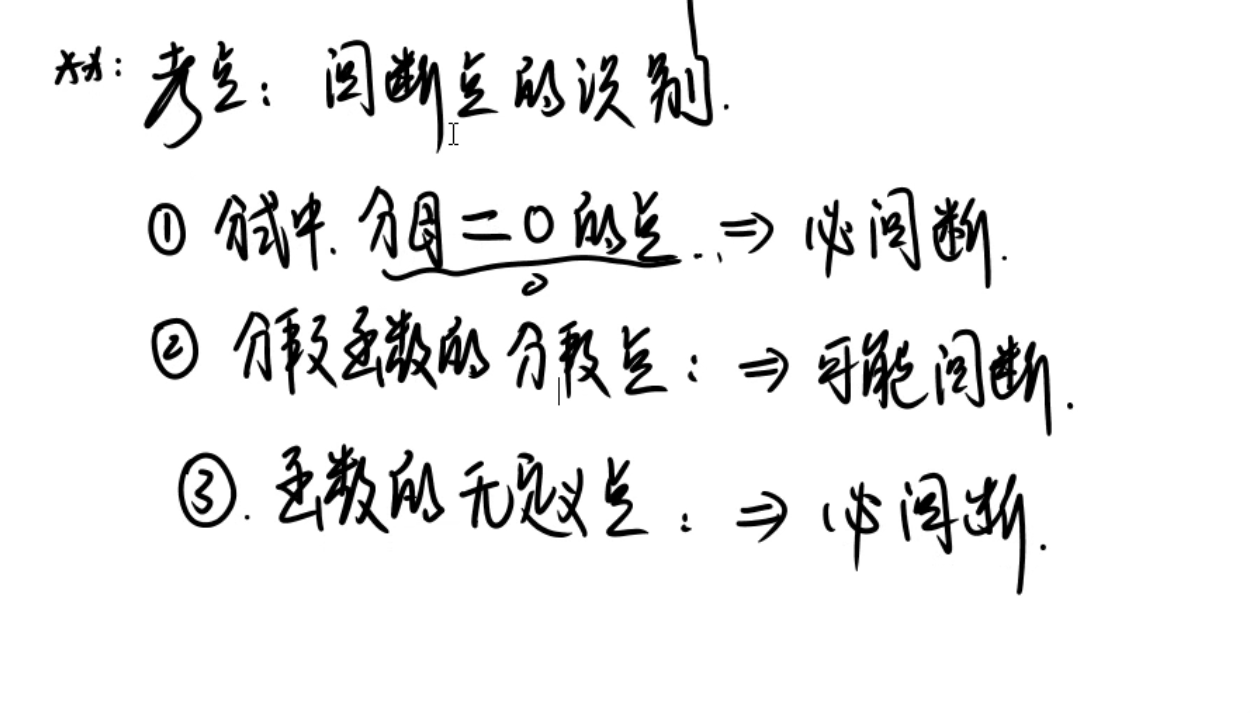 考点：间断点的识别.
① 分式中. 分母=0的点 ⇒ 必间断.
② 分段函数的分段点：⇒ 可能间断.
③. 函数的无定义点：⇒ 必间断.